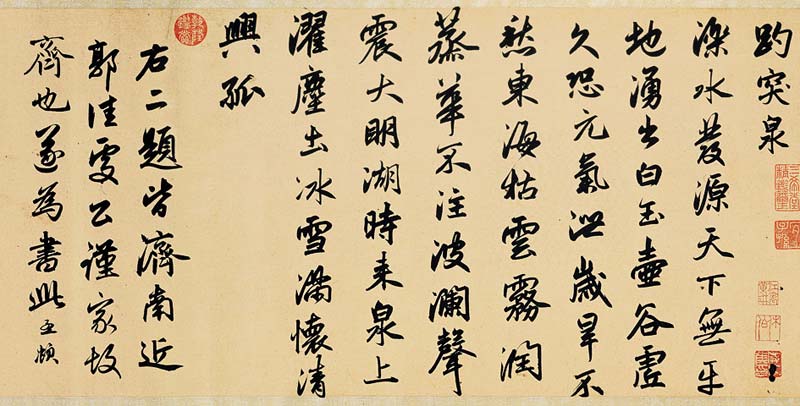 趵突泉
濼水發源天下無平
地湧出白玉壺谷虛
久恐元氣洩歲旱不
愁東海枯雲霧潤
蒸華不注波瀾聲
震大明湖時來泉上
濯塵土冰雪滿懷清
興孤
右二題皆濟南近
郭佳處公謹家故
齊也遂為書此孟頫
乾隆鑑賞
三希堂精鑑璽
宜子孫